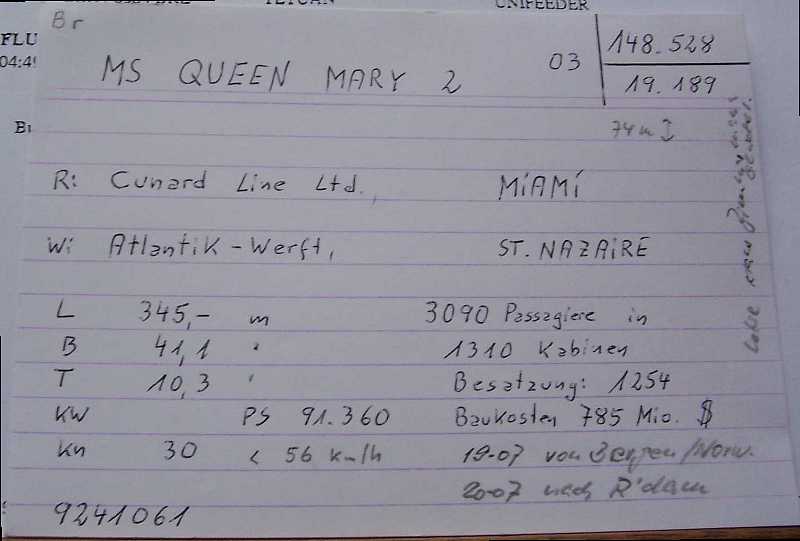 UNIFEEDER
FLU
Br
148.528
MS QUEEN MARY 2
03
19.189
04:4
74m
R: Cunard Line Ltd., MiAMi
W: Atlantik-Werft, ST. NAZAiRE
L 345,- m 3090 Passagiere in
B 41,1 " 1310 Kabinen
T 10,3 " Besatzung: 1254
KW PS 91.360 Baukosten 785 Mio. $
Kn 30 < 56 km/h 19-07 von Bergen/Norw.
20-07 nach R'dam
9241061